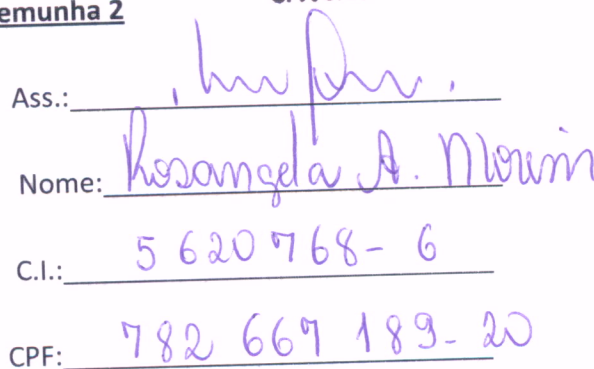 emunha 2
Ass.:
Nome: Rosangela A. Morim
C.I.: 5 620 768 - 6
CPF: 782 667 189 - 20